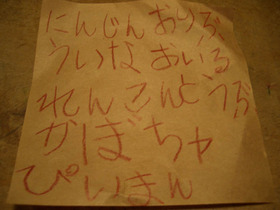 にんじん おりぶ
ういな おいる
れんこん どうぶ
かぼちャ
ぴいまん